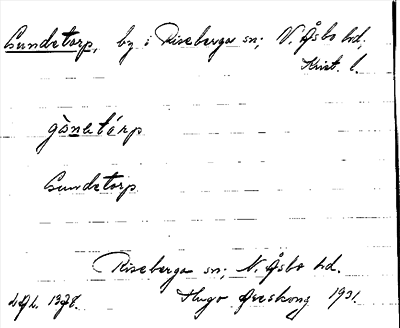 Gundetorp, by i Riseberga sn; N. Åsbo hd,
Krist. l.
gònetórp
Gundetorp
Riseberga sn; N. Åsbo hd.
Hugo Areskoug 1931.